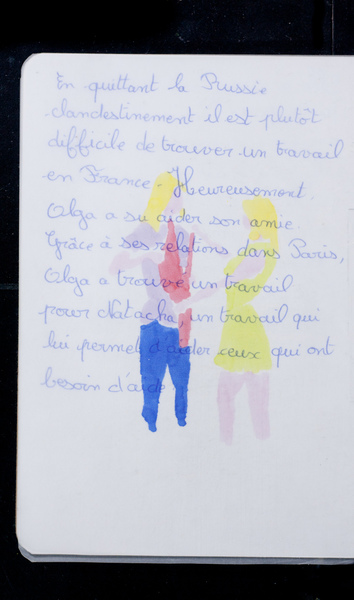 En quittant la Russie
clandestinement il est plutôt
difficile de trouver un travail
en France. Heureusement,
Olga a su aider son amie.
Grâce à ses relations dans Paris,
Olga a trouvé un travail
pour Natacha, un travail qui
lui permet d'aider ceux qui ont
besoin d'aide.